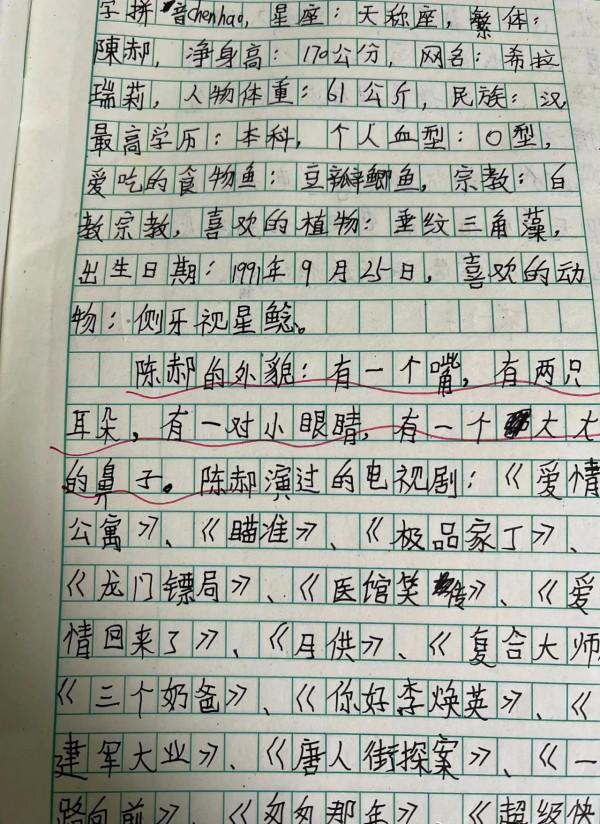 字拼音chenhao，星座：天称座，繁体：
陳郝，净身高：170公分，网名：希拉
瑞莉，人物体重：61公斤，民族：汉，
最高学历：本科，个人血型：O型，
爱吃的食物鱼：豆瓣鲫鱼，宗教：白
教宗教，喜欢的植物：垂纹三角藻，
出生日期：1991年9月25日，喜欢的动
物：侧牙视星鲶。
陈郝的外貌：有一个嘴，有两只
耳朵，有一对小眼睛，有一个大大
的鼻子。陈郝演过的电视剧：《爱情
公寓》、《瞄准》、《极品家丁》、
《龙门镖局》、《医馆笑传》、《爱
情回来了》、《月供》、《复合大师
《三个奶爸》、《你好李焕英》、《
建军大业》、《唐人街探案》、《一
路向前》、《匆匆那年》、《超级快